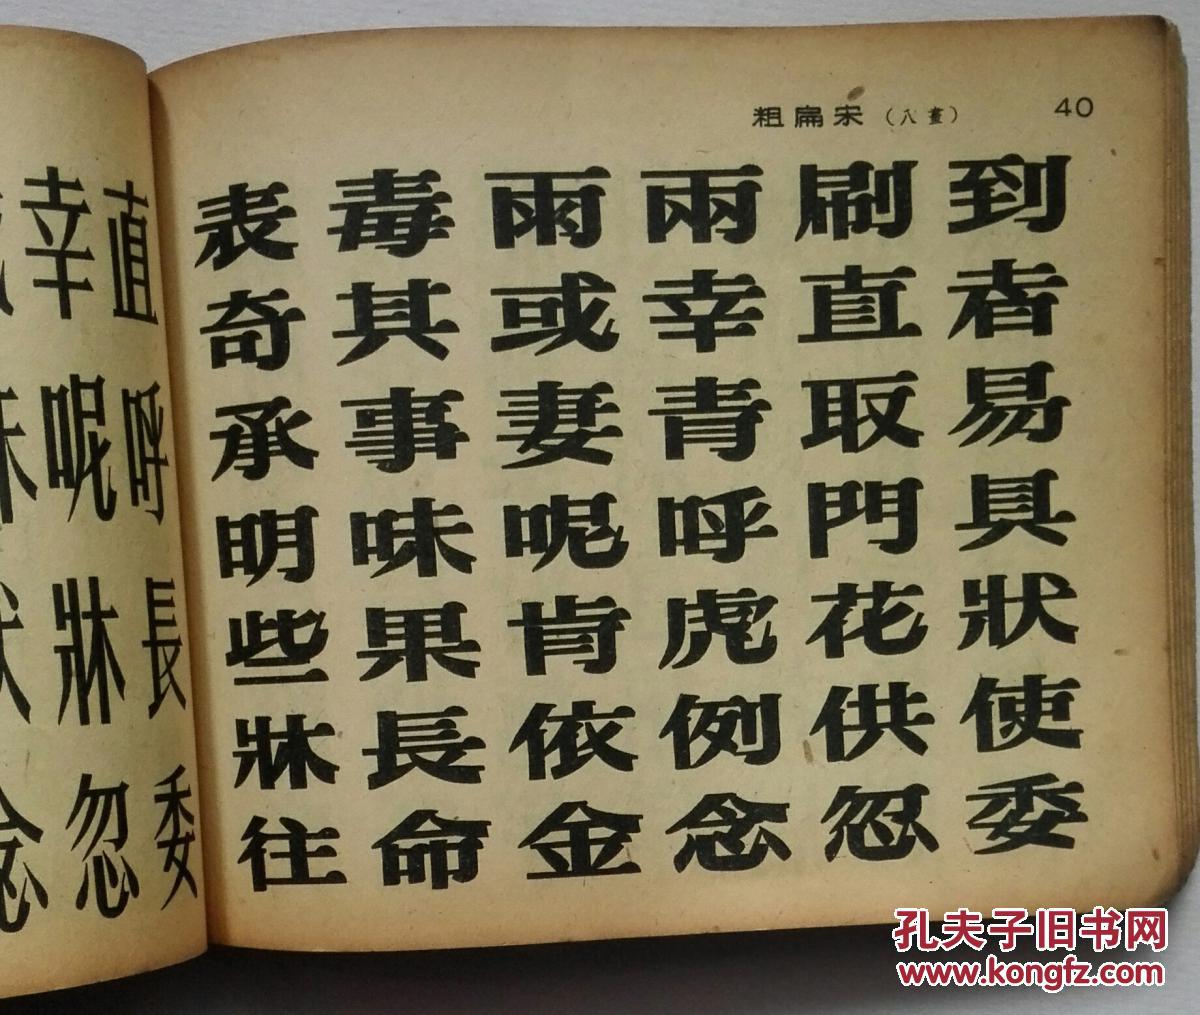 幸直
呢呼
牀長
念忽委
粗扁宋（八畫） 40
表毒雨兩刷到
奇其或幸直者
承事妻青取易
明味呢呼門具
些果肯虎花狀
牀長依例供使
往命金念忽委
孔夫子旧书网
www.kongfz.com